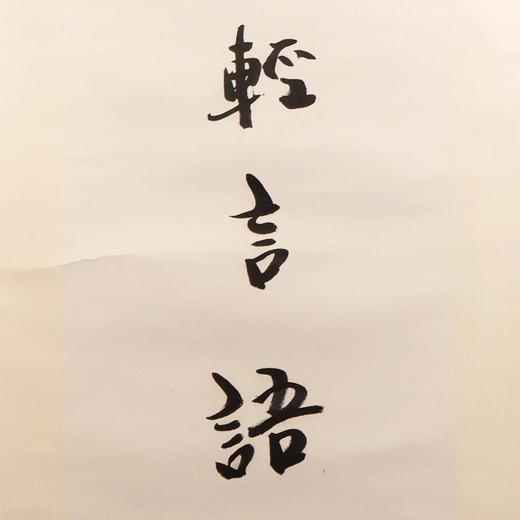 輕言語